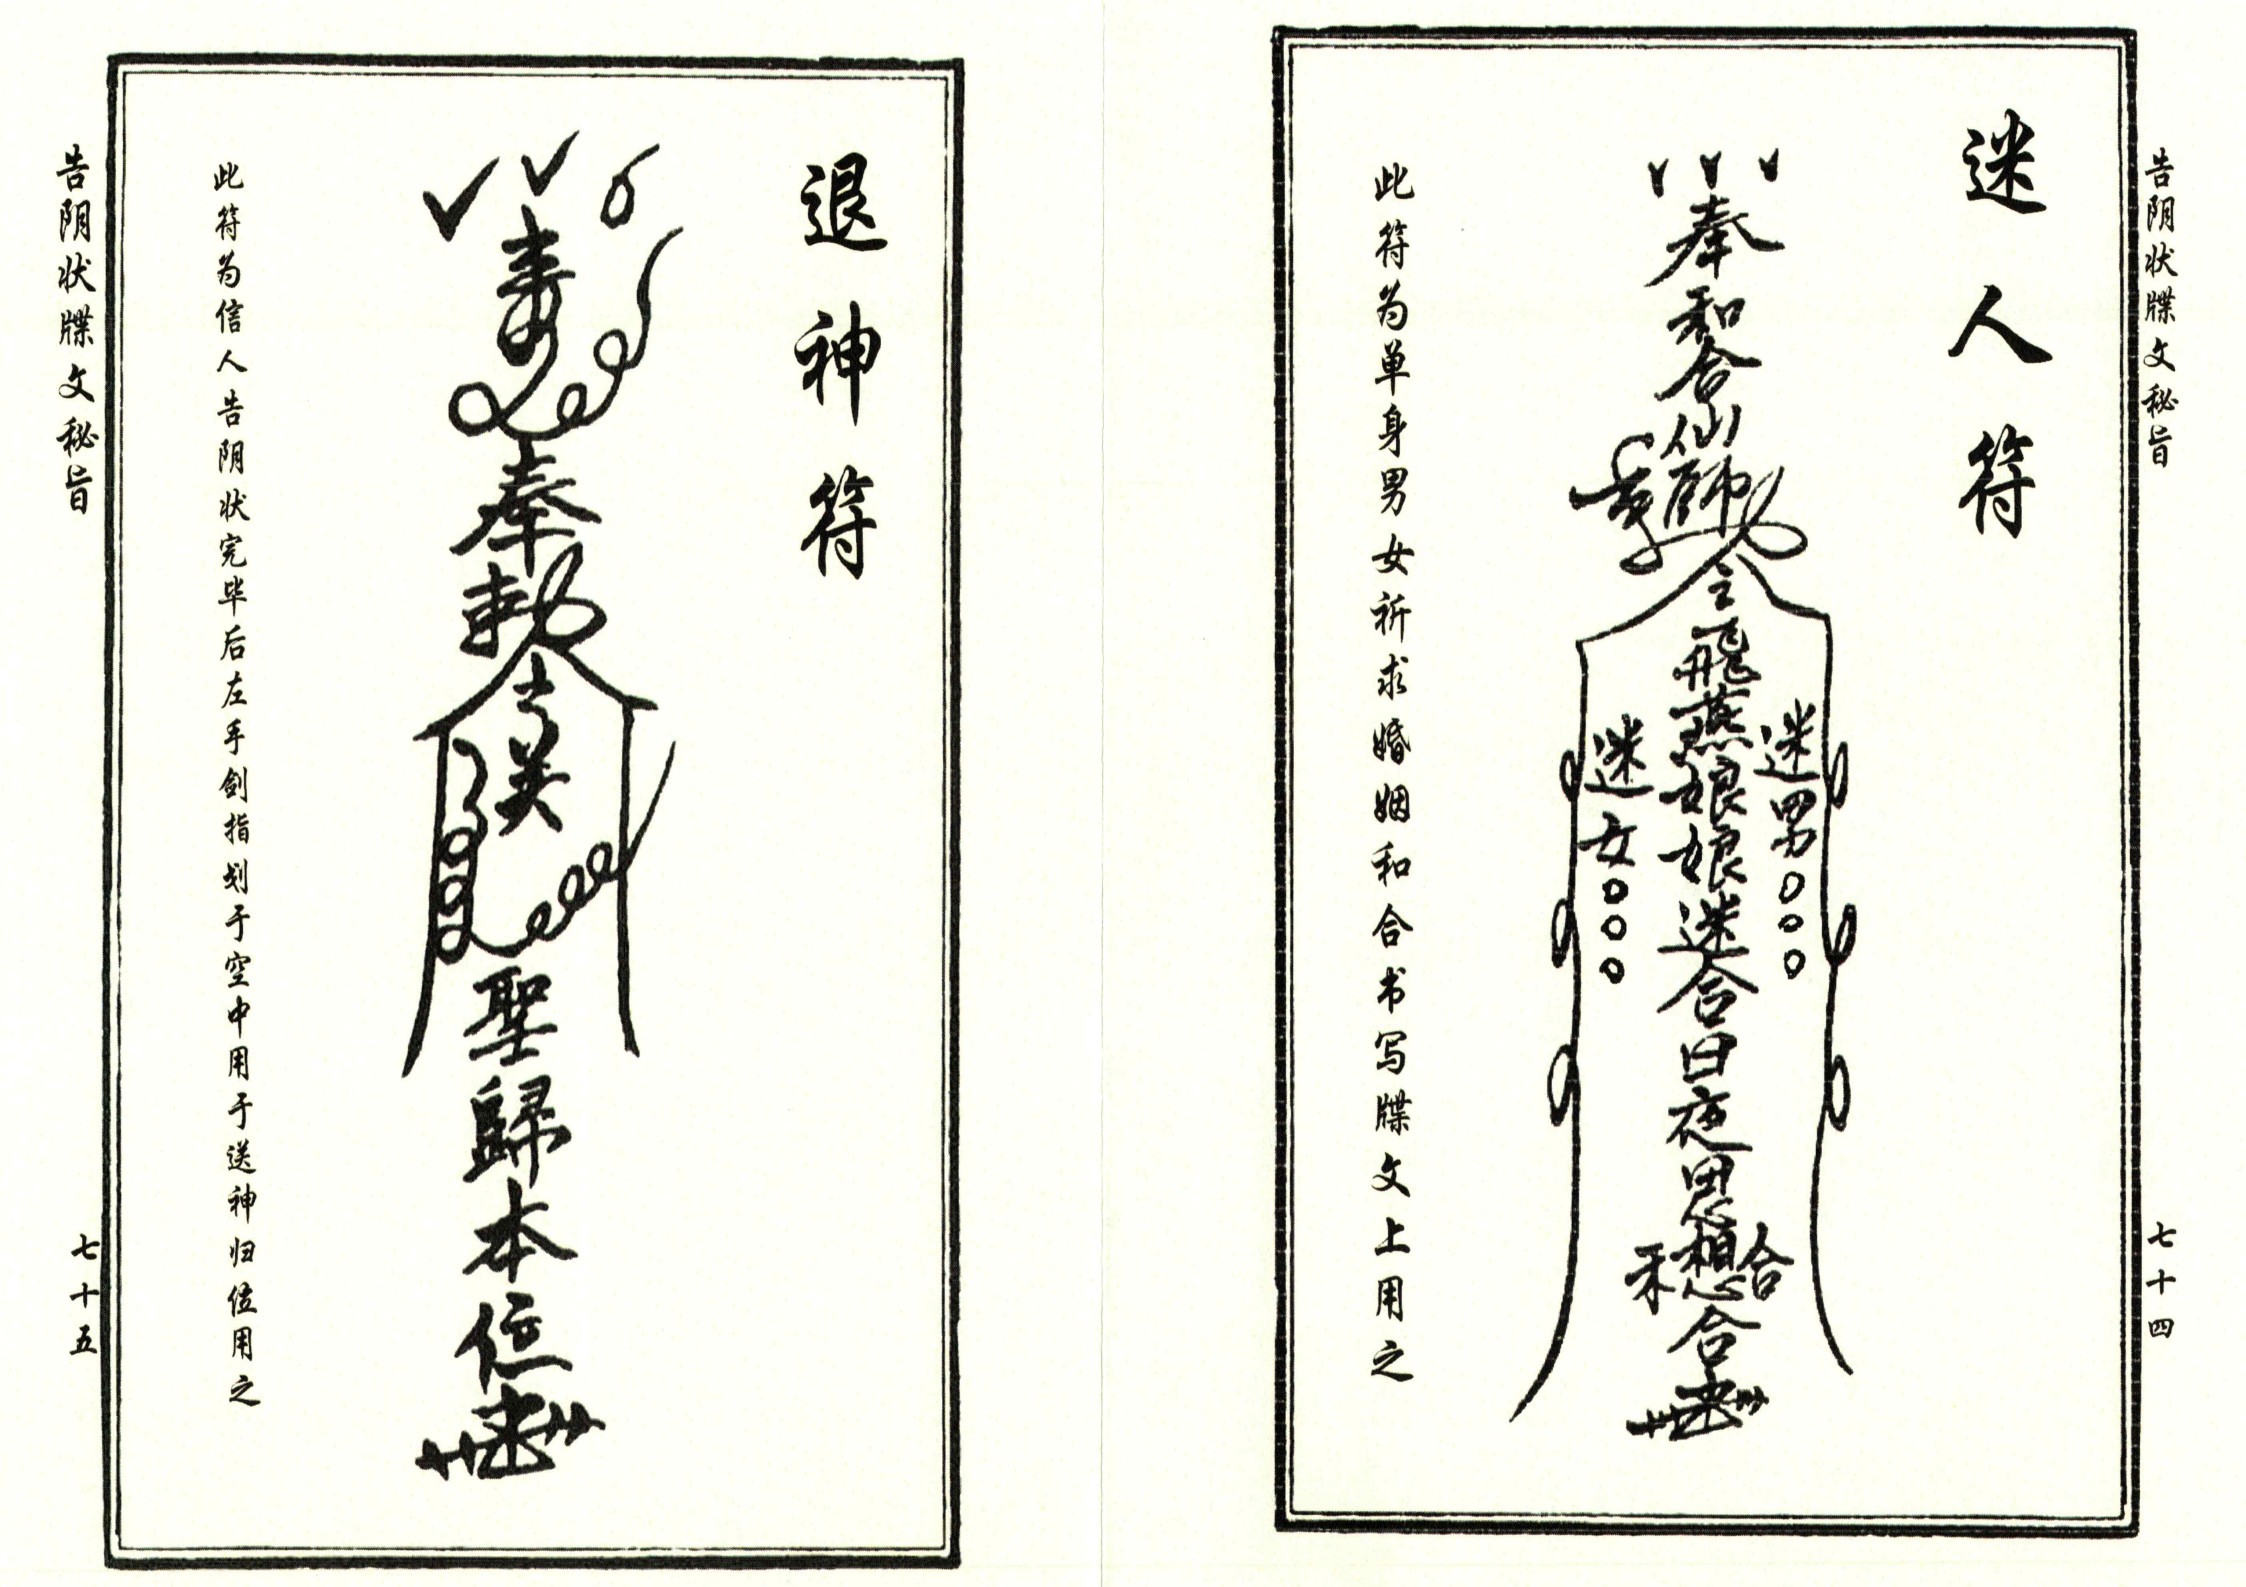 告阴状牒文秘旨
七十四
迷人符
奉和合仙師
令飛燕娘娘迷合日夜思想合
迷男
迷女
和合
此符为单身男女祈求婚姻和合书写牒文上用之
退神符
奉勅令
聖歸本位
此符为信人告阴状完毕后左手剑指划于空中用于送神归位用之
告阴状牒文秘旨
七十五